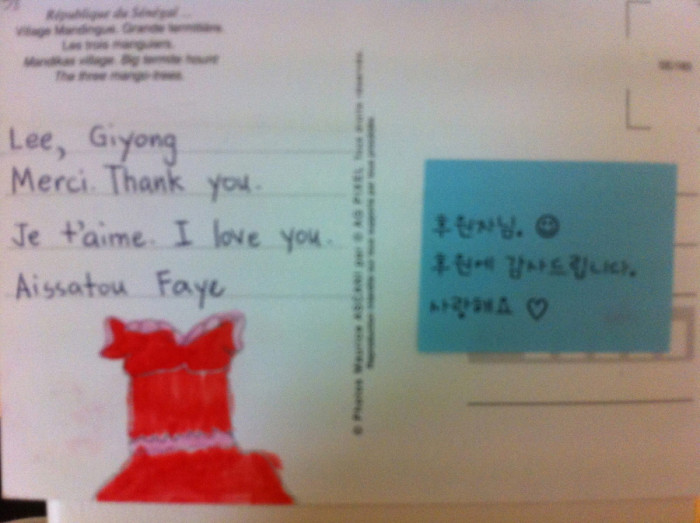 République du Sénégal ...
Village Mandingue. Grande termitière.
Les trois manguiers.
Mandikas village. Big termite hount
The three mango-trees.
Lee, Giyong
Merci. Thank you.
Je t'aime. I love you.
Aissatou Faye
© Photos Maurice ASCANI par © AG PIXEL Tous droits réservés.
Reproduction interdite sur tous supports par tous procédés.
후원자님. ☺
후원에 감사드립니다.
사랑해요 ♡